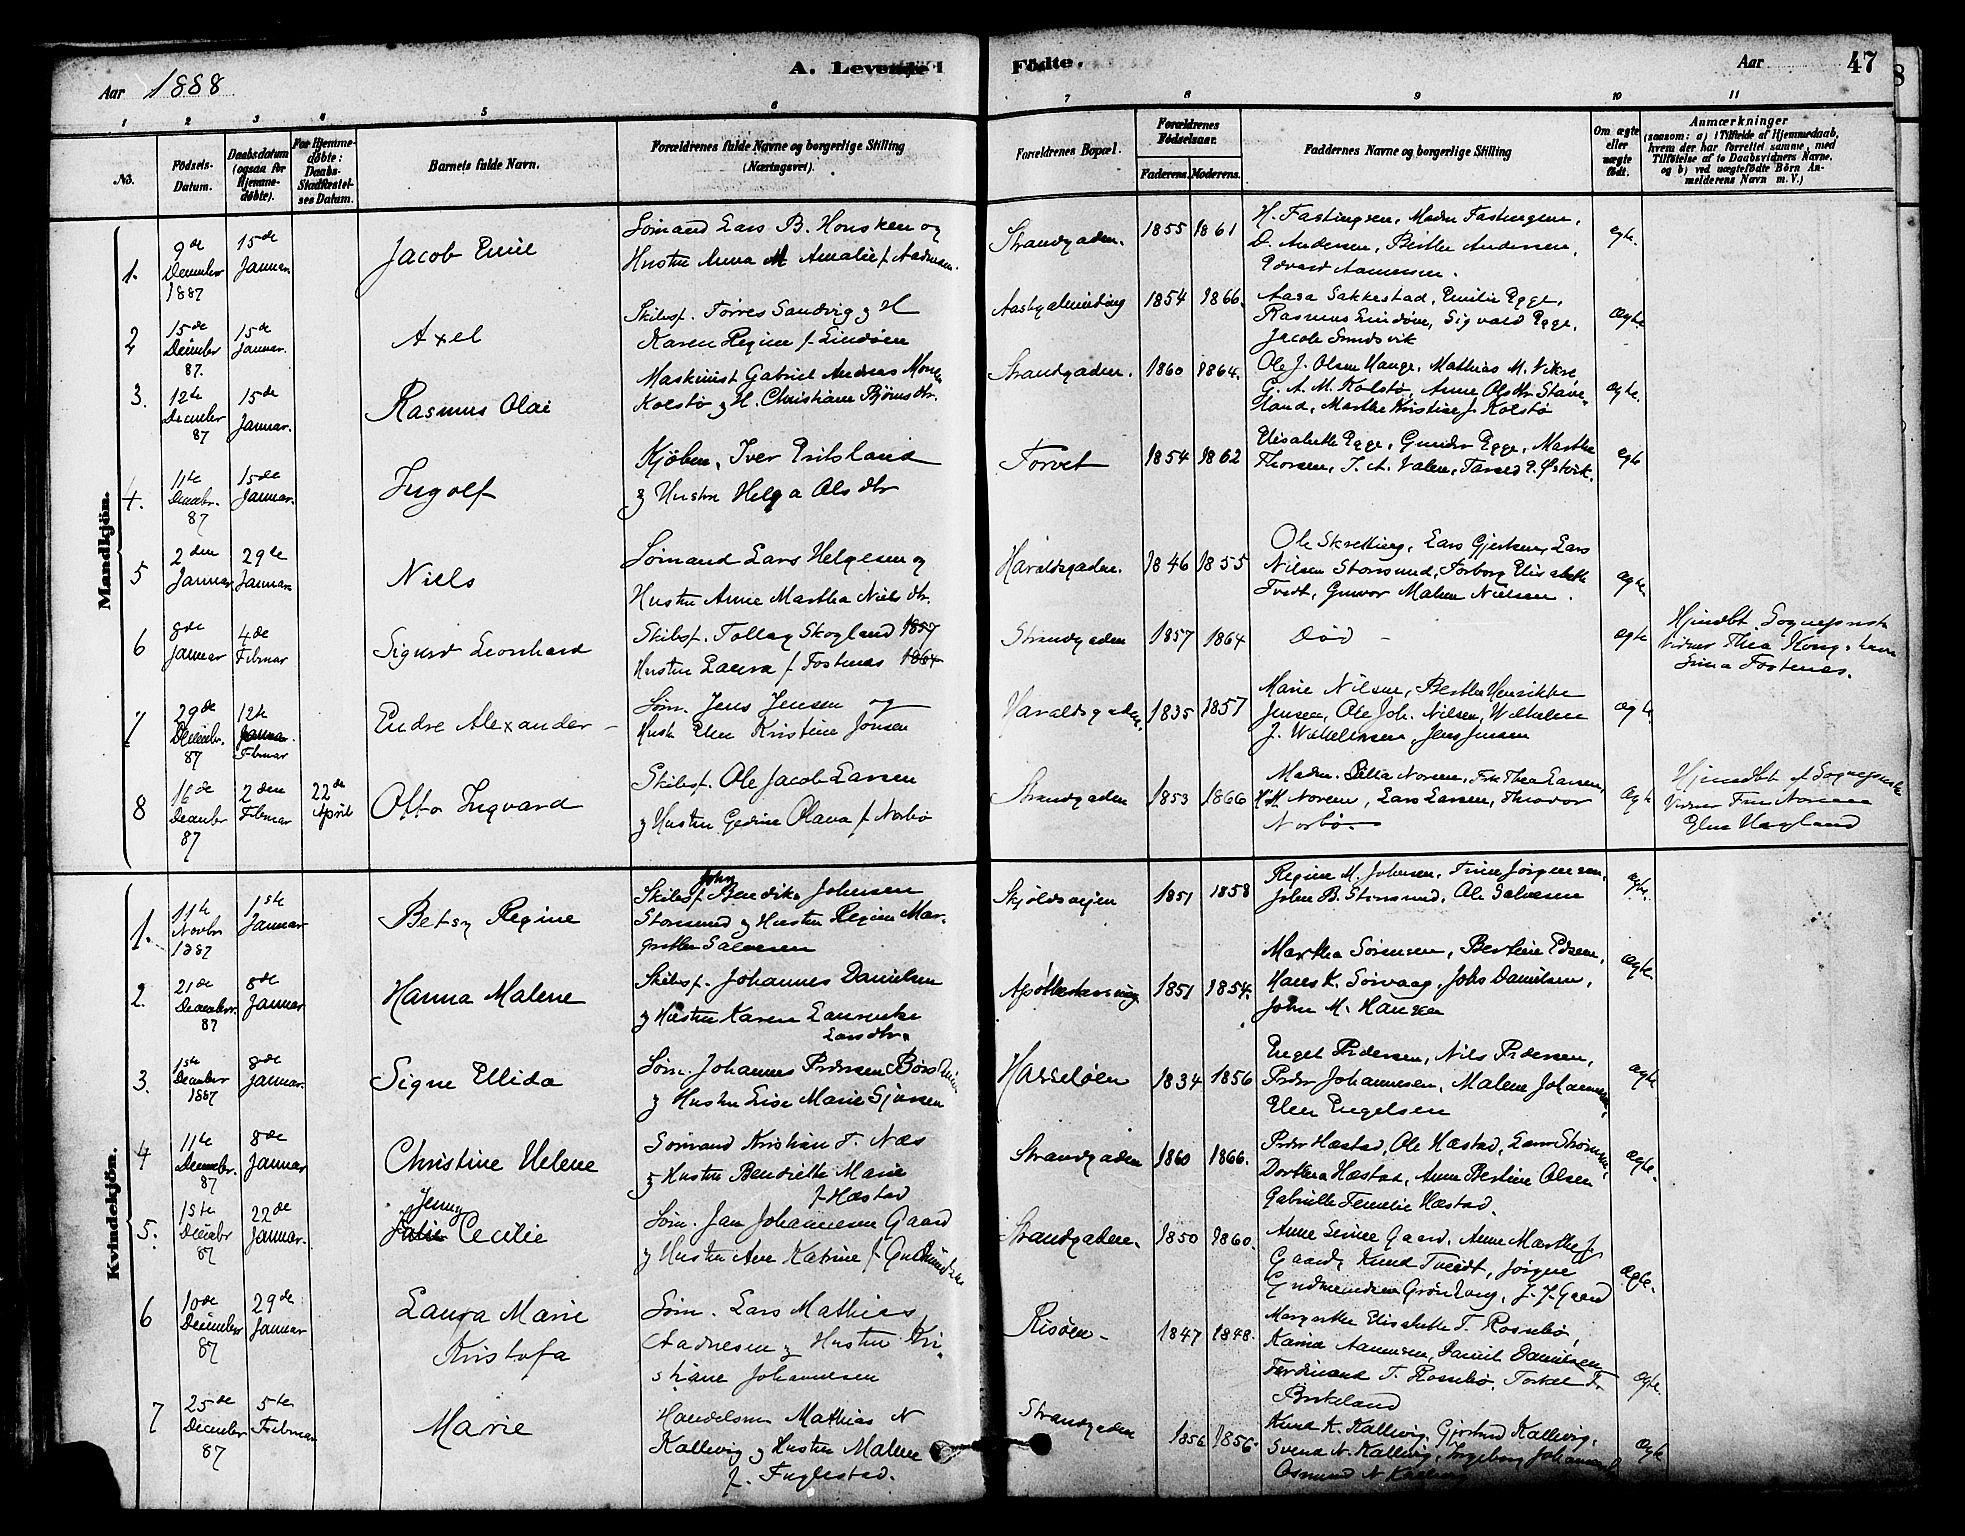 Aar 1888
A. Levende Fødte.
Aar 47
8
1 2 3 4 5 6 7 8 9 10 11
No.
Fødsels-Datum.
Daabsdatum (ogsaa for Hjemme-døbte).
For Hjemme-døbte: Daabs-Stadfæstel-ses Datum.
Barnets fulde Navn.
Forældrenes fulde Navne og borgerlige Stilling (Næringsvei).
Forældrenes Bopæl.
Forældrenes Fødselsaar.
Faderens. Moderens.
Faddernes Navne og borgerlige Stilling
Om ægte eller uægte født.
Anmærkninger
(saasom: a) i Tilfælde af Hjemmedaab, hvem der har forrettet samme, med Tilføielse af to Daabsvidners Navne, og b) ved uægtefødte Børn Anmelderens Navn m. V.)
Mandkjøn.
1. 9de December 1887 15de Januar. Jacob Emil
Sømand Lars B. Honsken og
Hustru Anna M Amalie f.
Strandgaden. 1855 1861
H. Fastingsen, Madm Fastingsen,
D. Andersen, Berthe Andersen,
Edvard Aanensen.
egte.
2 15de December 87. 15de Januar. Axel
Skibsf. Tørres Sandvig og H
Karen Regine f. Lindøen
1854 1866.
Aasa Sakkestad, Emilie Egge,
Rasmus Lindøen, Sigvald Egge,
Jacob Sundsvik
Ægte
3. 12te December 87 15de Januar. Rasmus Olai
Maskinist Gabriel Andreas Monsen
Kolstø og H. Christiane Bjørnsdtr.
Strandgaden. 1860 1864.
Ole J. Olsen Hauge, Mathias M. Vikse
G. A. M. Kolstø, Anne Olsdtr Stave-
land, Marthe Kristine J. Kolstø
ægte.
4. 11te Decembr. 87 15de Januar. Ingolf
Kjøbm. Iver Eritsland
og Hustru Helga Olsdtr
Torvet 1854 1862
Elisabeth Egge, Gunder Egge, Marthe
Thorsen, T. A. Valen, P. Østvik.
egte
5 2den Januar 29de Januar. Niels
Sømand Lars Helgesen og
Hustru Anne Martha Nielsdtr.
Haraldsgaden. 1846 1855
Ole Skretting, Lars Gjertsen, Lars
Nilsen Storesund, Torborg Elisabeth
Tvedt, Gunvor Malene Nielsen.
ægte
6 8de Januar 4de Februar Sigurd Leonhard
Skibsf. Tollag Skogland 1857
Hustru Laura f. Fostenæs 1864
Strandgaden 1857 1864
Død -
ægte
Hjmdbt. Sognepræst
Vidner Thea
Fostenæs.
7 29de Decembr. 87 12te Januar. Februar Endre Alexander -
Søm. Jens Jensen og
Hust. Elen Kristine Jonsen
Haraldsgaden 1835 1857
Marie Nilsen, Berthe Henrikke
Jensen, Ole Joh. Nilsen, Wilhelm
J. Wilhelmsen, Jens Jensen
ægte
8 16de December 87 2den Februar 22de April Otto Ingvard
Skibsf. Ole Jacob Larsen
og Hustru Gedine Olava f. Norbø
Strandgaden 1853 1866
Madm. Norem, Frk Thea Larsen,
Norem, Lars Larsen, Theodor
Norbø.
ægte
Hjmdbt af Sognepræst
Vidner Fru Norem
Elen Hagland
Kvindekjøn.
1. 11te Novbr 1887 1ste Januar Betsy Regine
Skibsf. John Bendiks Johnsen
Storesund og Hustru Regine Mar-
grethe Salvesen
Skjoldsveien 1851 1858
Regine M. Johnsen, Trine Jørgensen,
John B. Storesund, Ole Salvesen
ægte.
2. 21de December. 87 8de Januar Hanna Malene
Skibsf. Johannes Danielsen
og Hustru Karen Laurentze
Larsdtr.
1851 1854.
Martha Sørensen, Bertine Edsen,
Hans K. Sørvaag, Johs Danielsen,
John M. Hansen
ægte.
3. 1ste December 1887 8de Januar. Signe Ellida
Søm. Johannes Pedersen
og Hustru Lise Marie Sjursen
Hasseløen 1834 1856
Engel Pedersen, Nils Pedersen,
Peder Johannesen, Malene Johannesen,
Elen Engelsen
ægte
4 11te December. 87 8de Januar Christine Helene
Sømand Kristian T. Næs
og Hustru Bendikte Marie
f. Hæstad
Strandgaden 1860 1866.
Peder Hæstad, Ole Hæstad,
Dorthea Hæstad, Anne Bertine Olsen
Gabrielle Femelie Hæstad.
ægte.
5. 1ste December 87 22de Januar. Jenny Cecilie
Søm. Jan Johannesen Gaard
og Hustru Ane Katrine f.
Strandgaden. 1850 1860.
Anne Gaard, Anne Marthe J.
Gaard, Knud Tveidt, Jørgine
Gudmundsen Grønhaug, J. J. Gaard
ægte.
6 10de December 87 29de Januar Laura Marie
Kristofa
Søm. Lars Mathias
Aadnesen og Hustru Kri-
stiane Johannesen
Risøen - 1847 1848.
Margrethe Elisabeth T. Rossebø,
Karina Aanensen, Daniel Danielsen
Ferdinand T. Rossebø, Torkel T.
Birkeland
ægte.
7 25de December 87 5te Februar Marie
Handelsm Mathias N
Kallevig og Hustru Malene
f. Fuglestad.
Strandgaden 1856 1856.
Knud K. Kallevig, Gjertrud Kallevig,
Svend N. Kallevig, Ingeborg
Osmund N Kallevig
ægte